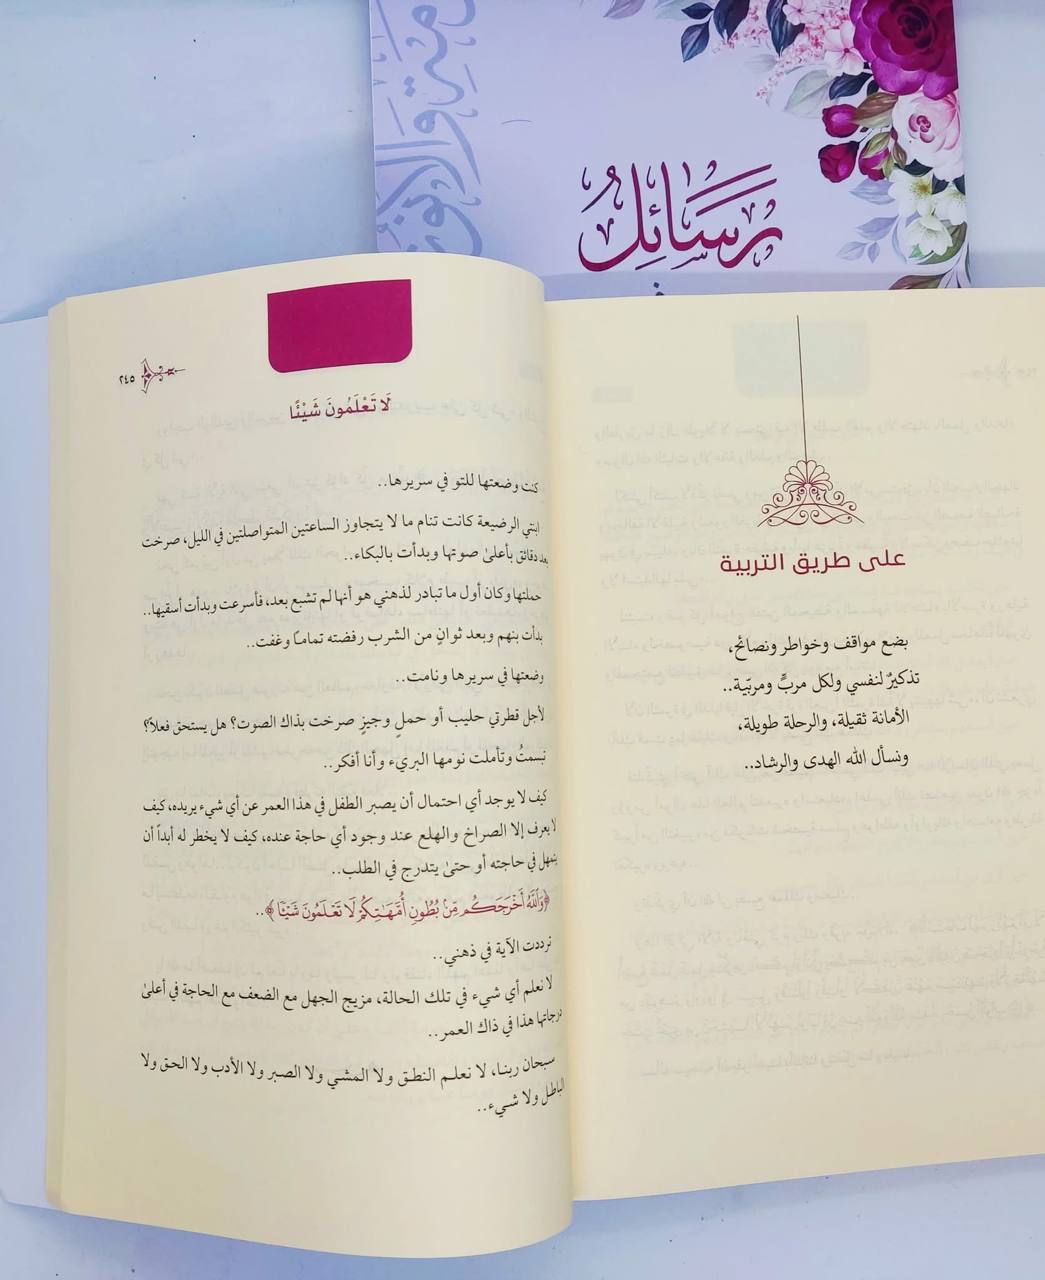 رَسَائِلُ
في
على طريق التربية
بضع مواقف وخواطر ونصائح،
تذكيرٌ لنفسي ولكل مربٍّ ومربّية..
الأمانة ثقيلة، والرحلة طويلة،
ونسأل الله الهدى والرشاد..
٢٤٥
لَا تَعْلَمُونَ شَيْئًا
كنت وضعتها للتو في سريرها..
ابنتي الرضيعة كانت تنام ما لا يتجاوز الساعتين المتواصلتين في الليل، صرخت
بعد دقائق بأعلىٰ صوتها وبدأت بالبكاء..
حملتها وكان أول ما تبادر لذهني هو أنها لم تشبع بعد، فأسرعت وبدأت أسقيها..
بدأت بنهم وبعد ثوانٍ من الشرب رفضته تمامًا وغفت..
وضعتها في سريرها ونامت..
لأجل قطرتي حليب أو حملٍ وجيزٍ صرخت بذاك الصوت؟ هل يستحق فعلًا؟
تبسمتُ وتأملت نومها البريء وأنا أفكر..
كيف لا يوجد أي احتمال أن يصبر الطفل في هذا العمر عن أي شيء يريده، كيف
لا يعرف إلا الصراخ والهلع عند وجود أي حاجة عنده، كيف لا يخطر له أبداً أن
يتمهل في حاجته أو حتىٰ يتدرج في الطلب..
﴿وَاللَّهُ أَخْرَجَكُم مِّنۢ بُطُونِ أُمَّهَٰتِكُمْ لَا تَعْلَمُونَ شَيْئًا﴾..
ترددت الآية في ذهني..
لا نعلم أي شيء في تلك الحالة، مزيج الجهل مع الضعف مع الحاجة في أعلىٰ
درجاتها هذا في ذاك العمر..
سبحان ربنا، لا نعلم النطق ولا المشي ولا الصبر ولا الأدب ولا الحق ولا
الباطل ولا شيء..